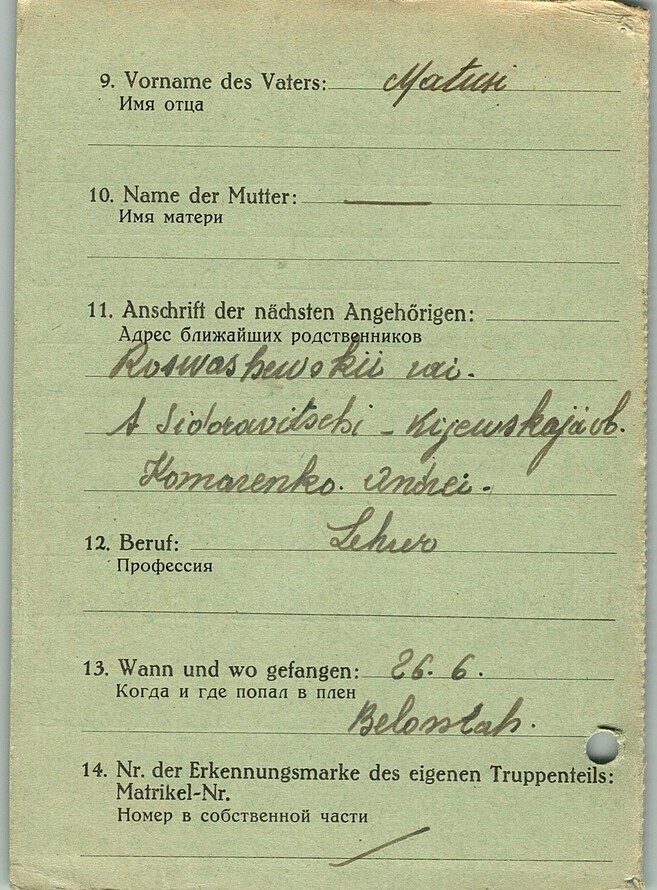 9. Vorname des Vaters: Matusi
Имя отца
10. Name der Mutter: —
Имя матери
11. Anschrift der nächsten Angehörigen:
Адрес ближайших родственников
Roswashewskii rai.
Sidoravitschi - Kijewskaja ob.
Komarenko. Andrei.
12. Beruf: Lehrer
Профессия
13. Wann und wo gefangen: 26. 6.
Когда и где попал в плен
Belostah.
14. Nr. der Erkennungsmarke des eigenen Truppenteils:
Matrikel-Nr.
Номер в собственной части